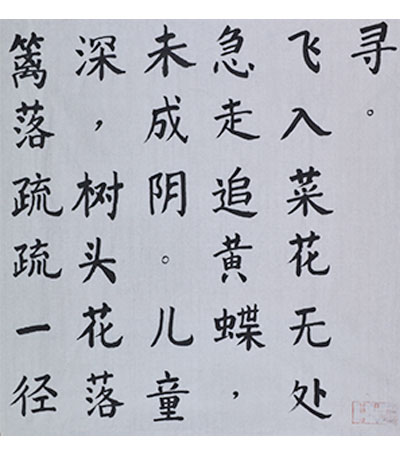 篱落疏疏一径
深，树头花落
未成阴。儿童
急走追黄蝶，
飞入菜花无处
寻。